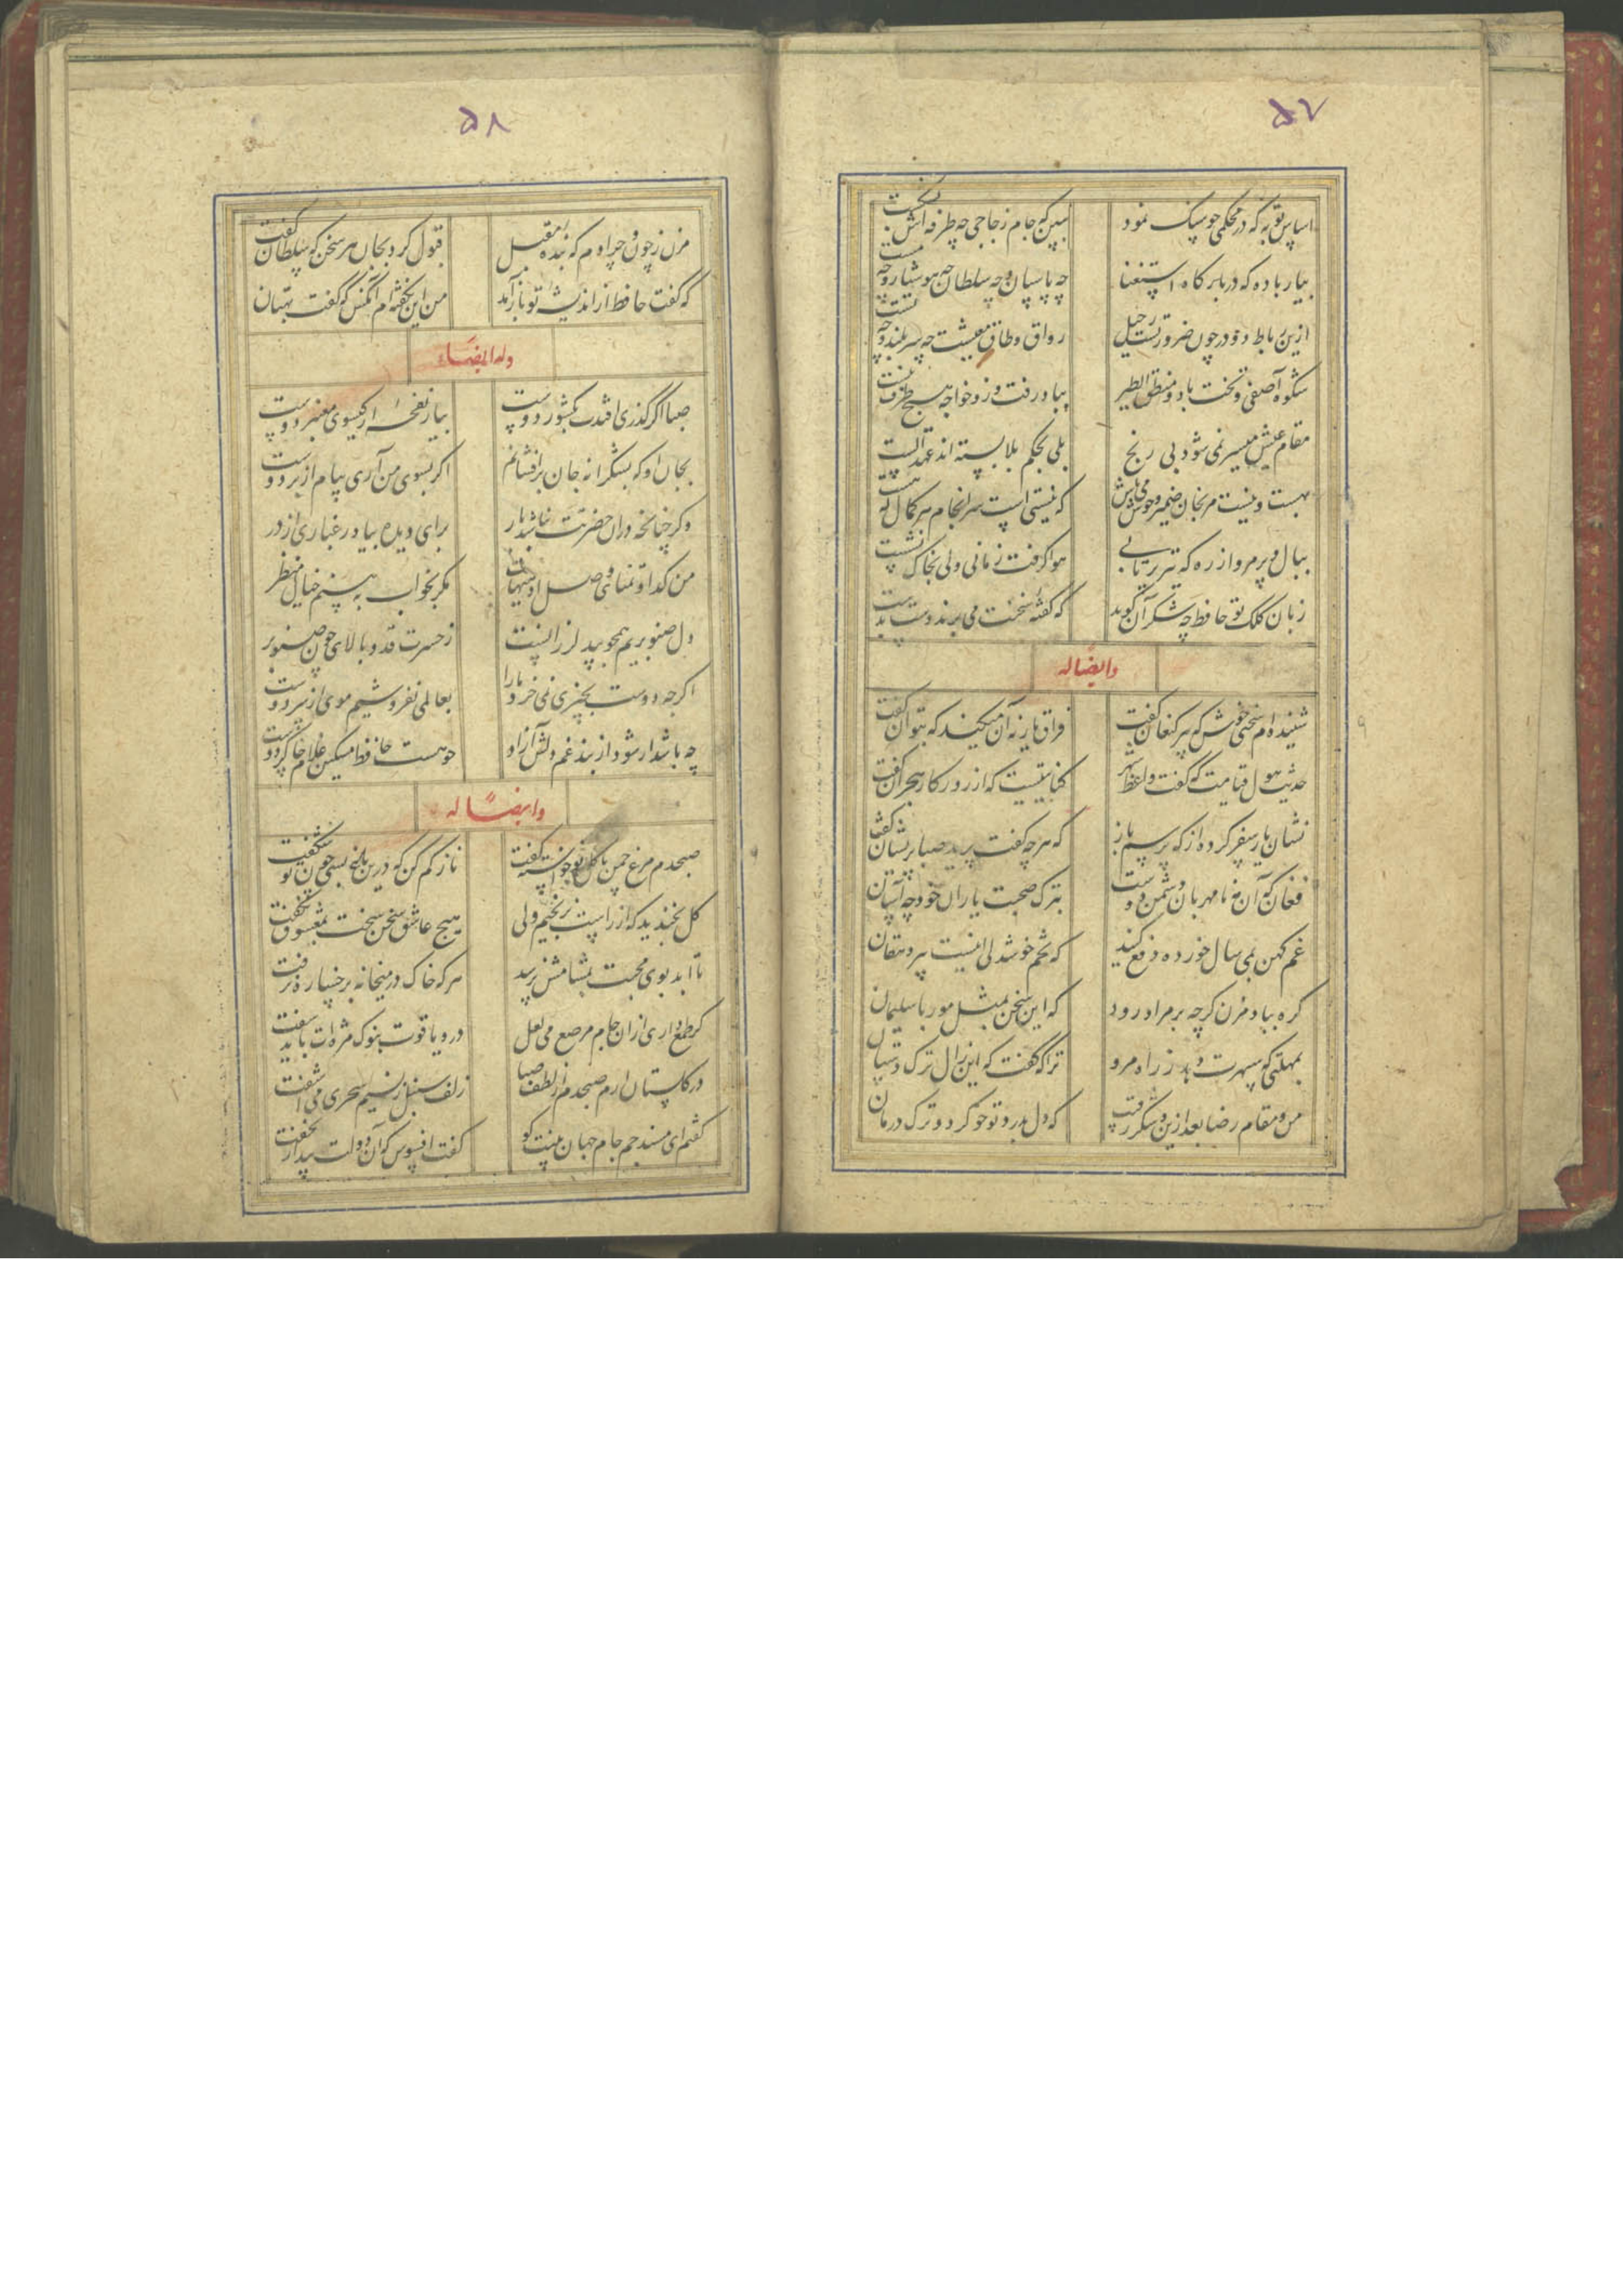 ۵۷
اساس توبه که در محکمی چو سنک نمود
ببین که جام زجاجی چه طرفه اش بشکست
بیار باده که در بارکاه استغنا
چه پاسبان و چه سلطان چه هوشیار و چه مست
ازین رباط دو در چون ضرورتست رحیل
رواق و طاق معیشت چه سربلند و چه پست
شکوه آصفی و تخت باد و منطق الطیر
بباد رفت و زو خواجه هیچ طرف نبست
مقام عیش میسر نمی شود بی رنج
بلی بحکم بلا بسته اند عهد الست
بهست و نیست مرنجان ضمیر و خوش می باش
که نیستی است سرانجام هر کمال که هست
ببال و پر مرو از ره که تیر پرتابی
هوا کرفت زمانی ولی بخاک نشست
زبان کلک تو حافظ چه شکر آن کوید
که کفته سخنت می برند دست بدست
وایضا له
شنیده ام سخنی خوش که پیر کنعان کفت
فراق یار نه آن میکند که بتوان کفت
حدیث هول قیامت که کفت واعظ شهر
کنایتیست که از روزکار هجران کفت
نشان یار سفر کرده از که پرسم باز
که هر چه کفت برید صبا پریشان کفت
فغان که آن مه نامهربان دشمن دوست
بترک صحبت یاران خود چه آسان
غم کهن بمی سال خورده دفع کنید
که تخم خوشدلی اینست پیر دهقان
کره بباد مزن کرچه بر مراد رود
که این سخن بمثل مور با سلیمان
بمهلتی که سپهرت دهد ز راه مرو
ترا که کفت که این زال ترک دستان
من و مقام رضا بعد ازین و شکر رقیب
که دل بدرد تو خو کرد و ترک درمان
۵۸
مزن ز چون و چرا دم که بنده مقبل
قبول کرد بجان هر سخن که سلطان کفت
که گفت حافظ از اندیشه تو باز آمد
من این نکفته ام آنکس که گفت بهتان
وله ایضاء
صبا اکر گذری افتدت بکشور دوست
بیار نفحه از کیسوی معنبر دوست
بجان او که بشکرانه جان برافشانم
اکر بسوی من آری پیام از بر دوست
وکر چنانچه دران حضرت نباشد بار
برای دیده بیاور غباری از در
من کدا و تمنای وصل او هیهات
مکر بخواب ببینم خیال منظر
دل صنوبریم همچو بید لرزانست
ز حسرت قد و بالای چون صنوبر
اکرچه دوست بچیزی نمی خرد ما را
بعالمی نفروشیم موی از سر دوست
چه باشد ار شود از بند غم دلش آزاد
چو هست حافظ مسکین غلام چاکر دوست
وایضاً له
صبحدم مرغ چمن با کل نو خواسته کفت
ناز کم کن که درین باغ بسی چون تو شکفت
کل بخندید که از راست نرنجیم ولی
هیچ عاشق سخن سخت بمعشوق نکفت
تا ابد بوی محبت بمشامش نرسد
هر که خاک در میخانه برخساره نرفت
کر طمع داری ازان جام مرصع می لعل
در و یاقوت بنوک مژه ات باید سفت
در کلستان ارم صبحدم از لطف صبا
زلف سنبل ز نسیم سحری می آشفت
کفتم ای مسند جم جام جهان بینت کو
کفت افسوس که آن دولت بیدار بخفت